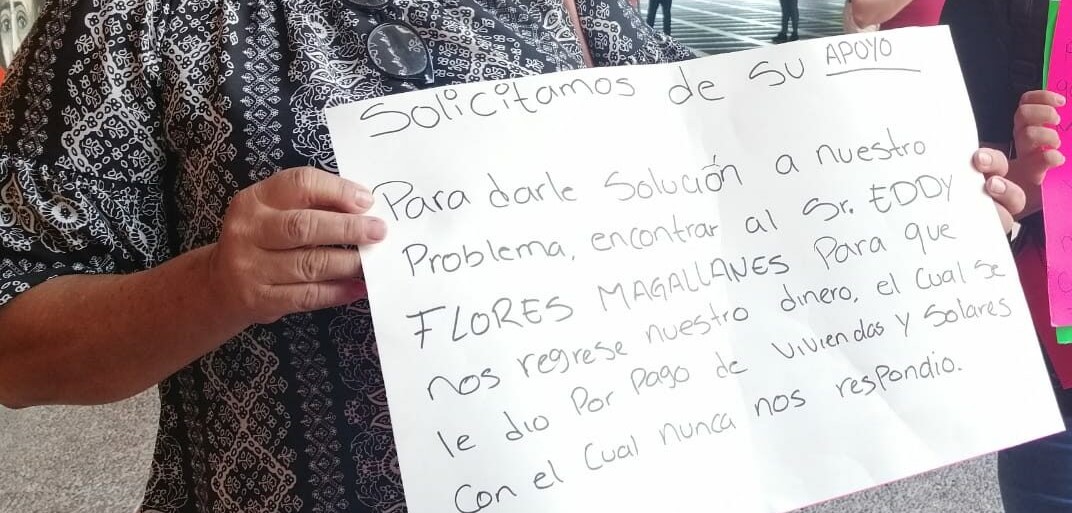 Solicitamos de su APOYO
Para darle Solución a nuestro
Problema, encontrar al Sr. EDDY
FLORES MAGALLANES Para que
nos regrese nuestro dinero, el Cual Se
le dio Por Pago de viviendas y Solares
Con el Cual nunca nos respondio.